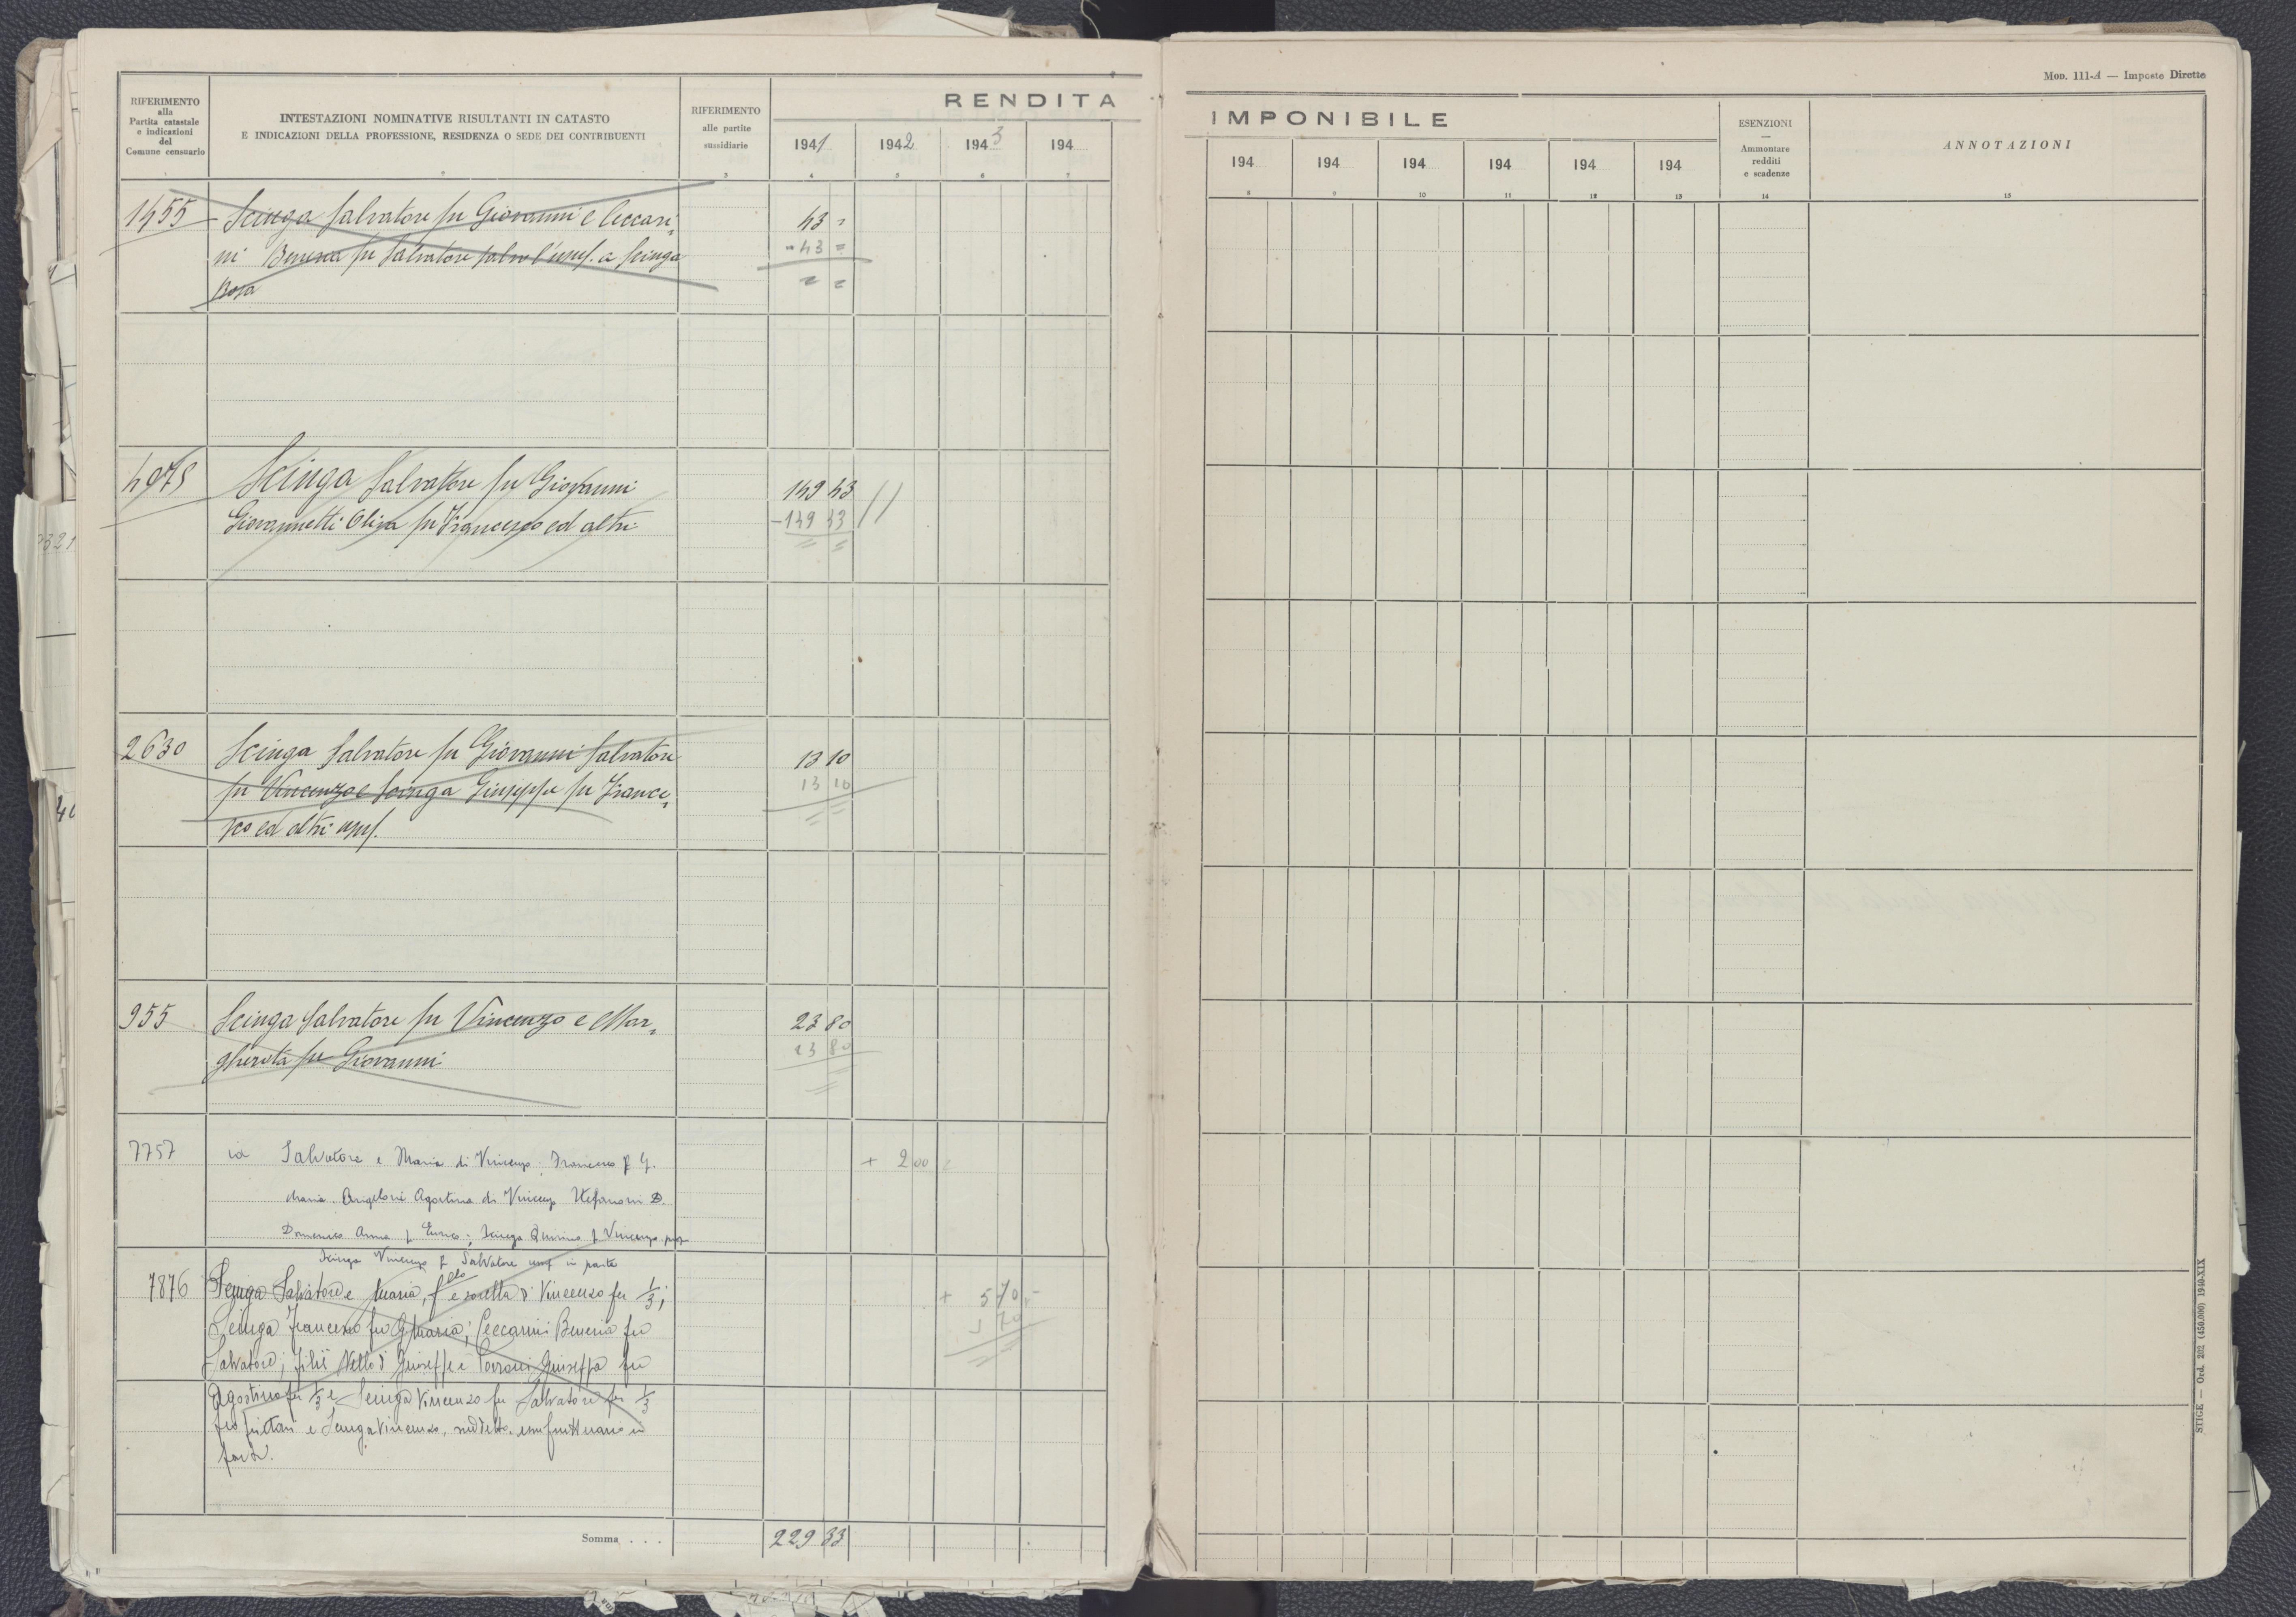 Mod. 111-A — Imposte Dirette
RIFERIMENTO
alla
Partita catastale
e indicazioni
del
Comune censuario
INTESTAZIONI NOMINATIVE RISULTANTI IN CATASTO
E INDICAZIONI DELLA PROFESSIONE, RESIDENZA O SEDE DEI CONTRIBUENTI
RIFERIMENTO
alle partite
sussidiarie
RENDITA IMPONIBILE
1941 1942 1943 194 194 194 194 194 194 194
ESENZIONI
—
Ammontare
redditi
e scadenze
ANNOTAZIONI
3 4 5 6 7 8 9 10 11 12 13 14 15
1455 Scinga Salvatore fu Giovanni e Ceccari- 43 =
ni Benesia fu Salvatore salvo l'usuf. a Scinga - 43 =
Rosa = =
4975 Scinga Salvatore fu Giovanni 149 43
Giovannetti Oliva fu Francesco ed altri - 149 43
= =
2630 Scinga Salvatore fu Giovanni Salvatore 13 10
fu Vincenzo e Scinga Giuseppe fu France- 13 10
sco ed altri usuf.
955 Scinga Salvatore fu Vincenzo e Mar- 23 80
gherita fu Giovanni 23 80
7757 id Salvatore e Maria di Vincenzo; Francesco f G. + 2 00
Maria. Angeloni Agostina di Vincenzo Stefanoni D.
Domenico Anna f Enrico; Scinga Quirino f Vincenzo prop
Scinga Vincenzo f Salvatore usuf in parte
7876 Scinga Salvatore e Maria, f.llo e sorella di Vincenzo per 1/3; + 5 70
Scinga Francesco fu G Maria; Ceccarini Benesia fu 5 70
Salvatore; Nello di Giuseppe e Giuseppa fu
Agostino per 1/3 e Scinga Vincenzo fu Salvatore per 1/3
proprietari e Scinga Vincenzo, suddetto. usufruttuario in
parte.
Somma . . . 229 33
STIGE — Ord. 202 (450.000) 1940-XIX